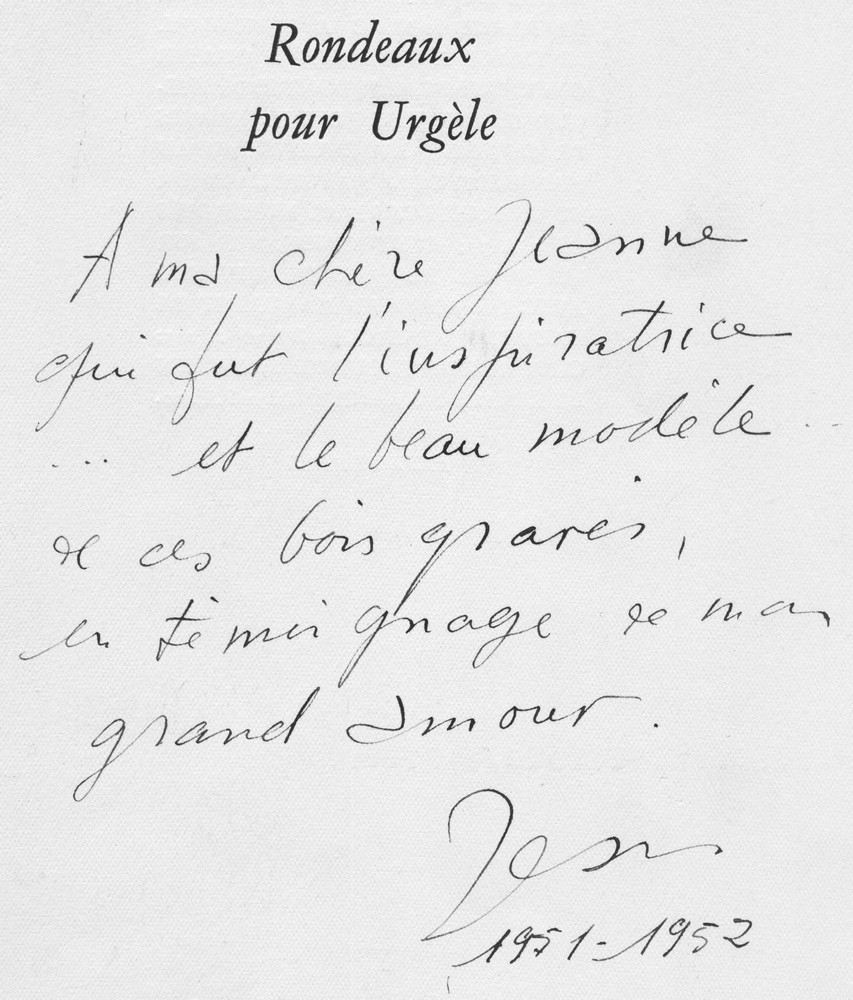 Rondeaux
pour Urgèle
A ma chère Jeanne
qui fut l'inspiratrice
... et le beau modèle ...
de ces bois gravés,
en témoignage de mon
grand amour.
Jean
1951-1952